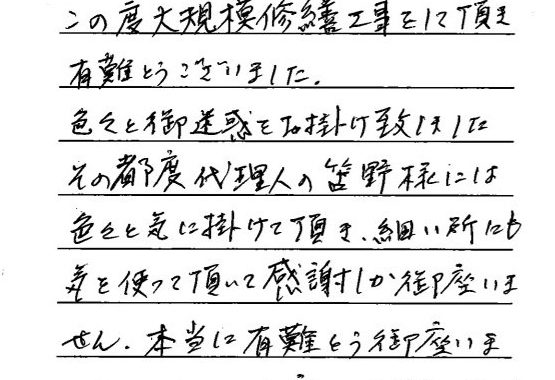 この度大規模修繕工事をして頂き
有難とうございました.
色々と御迷惑をお掛け致しました
その都度代理人の笛野様には
色々と気に掛けて頂き、細い所にも
気を使って頂いて感謝しか御座いま
せん.本当に有難とう御座いま